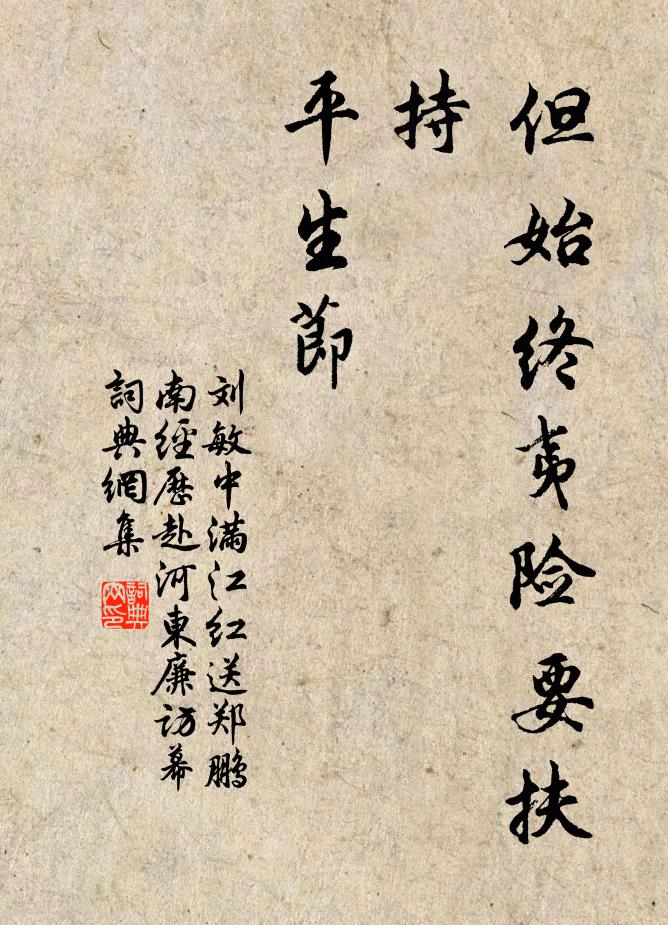 但始终夷险要扶
持
平生節
刘敏中满江红送郑鹏
南經歷赴河東廉访幕
詞典網集
詞典
网印